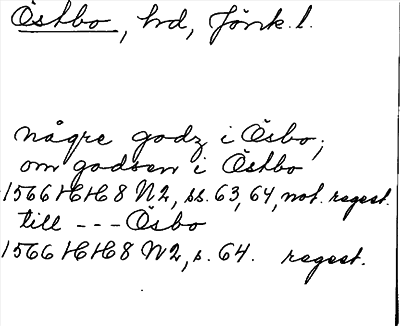 Östbo, hd, Jönk. l.
några godz i Ösbo;
om godsen i Östbo
1566 HH8 N2, ss. 63, 64, not. regest.
till --- Ösbo
1566 HH8 N2, s. 64. regest.